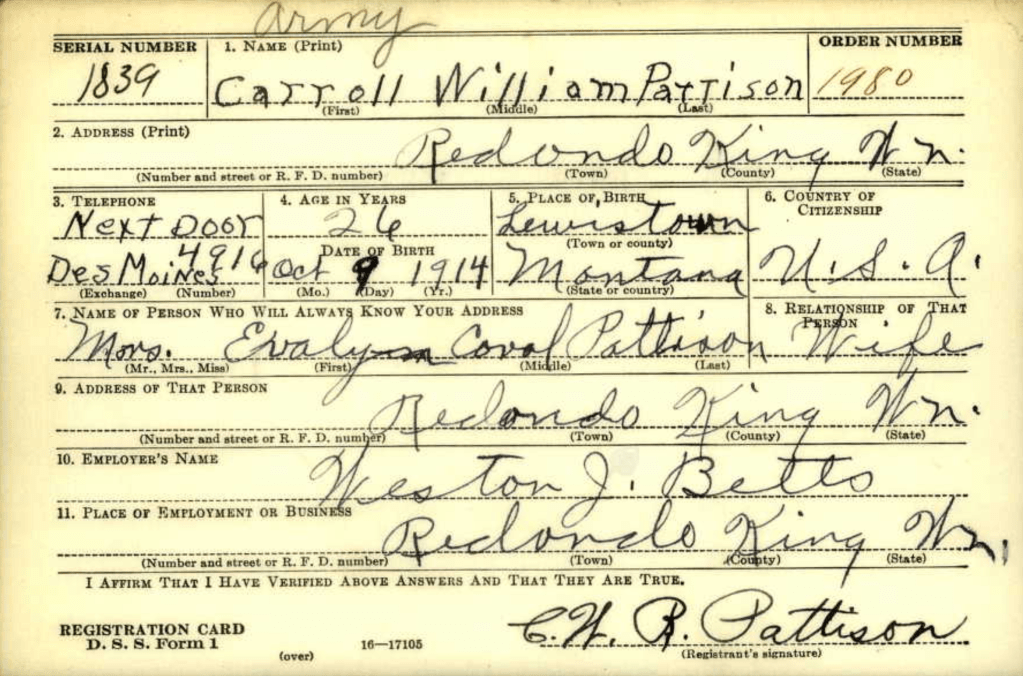 Army
SERIAL NUMBER 1. NAME (Print) ORDER NUMBER
1839 Carroll William Pattison 1980
(First) (Middle) (Last)
2. ADDRESS (Print)
Redondo King Wn.
(Number and street or R. F. D. number) (Town) (County) (State)
3. TELEPHONE 4. AGE IN YEARS 5. PLACE OF BIRTH 6. COUNTRY OF CITIZENSHIP
Next Door 26 Lewistown
(Town or county)
DATE OF BIRTH
Des Moines 4916 Oct 9 1914 Montana U. S. A.
(Exchange) (Number) (Mo.) (Day) (Yr.) (State or country)
7. NAME OF PERSON WHO WILL ALWAYS KNOW YOUR ADDRESS 8. RELATIONSHIP OF THAT PERSON
Mrs. Evalynn Pattison Wife
(Mr., Mrs., Miss) (First) (Middle) (Last)
9. ADDRESS OF THAT PERSON
Redondo King Wn.
(Number and street or R. F. D. number) (Town) (County) (State)
10. EMPLOYER'S NAME
Weston J. Betts
11. PLACE OF EMPLOYMENT OR BUSINESS
Redondo King Wn.
(Number and street or R. F. D. number) (Town) (County) (State)
I AFFIRM THAT I HAVE VERIFIED ABOVE ANSWERS AND THAT THEY ARE TRUE.
C. W. R. Pattison
REGISTRATION CARD
D. S. S. Form 1 16—17105 (Registrant's signature)
(over)